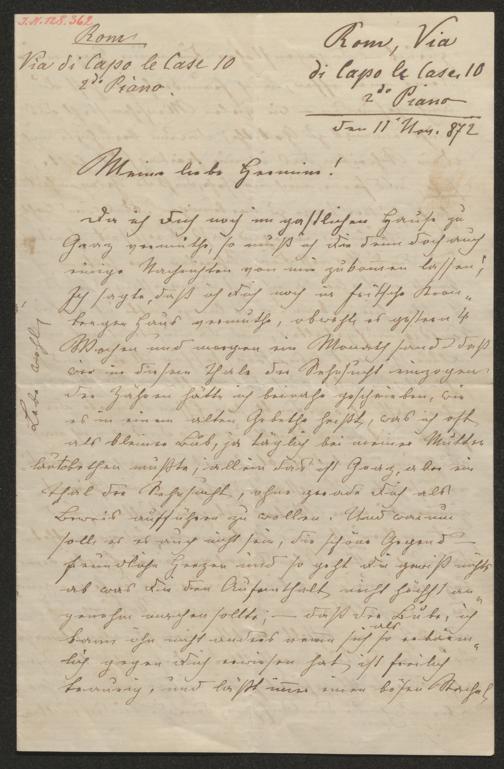 J.N. 128.362
Rom
Via di Capo le Case 10
2do Piano.
Rom, Via
di Capo le Case. 10
2do Piano
den 11t Nov. 872
Meine liebe Hermine!
Da ich Dich noch im gastlichen Hause zu
Graz vermuthe, so muß ich Dir denn doch auch
einige Nachrichten von mir zukommen lassen;
Ich sagte, daß ich Dich noch im Kron„
berger Haus vermuthe, obwohl es gestern 4
Wochen und morgen ein Monath sind daß
wir in diesem Thale der Sehnsucht einzogen.
der Zähren hätte ich beinahe geschrieben, wie
es in einem alten Gebethe heißt, was ich oft
als kleiner Bub, ja täglich bei meiner Mutter
lautbethen mußte, allein das ist Graz, aber ein
Thal der Sehnsucht, ohne gerade Dich als
Beweis aufführen zu wollen. Und warum
soll es es auch nicht sein, die schöne Gegend –
freundliche Herzen und so geht Dir gewiß nichts
ab was Dir den Aufenthalt nicht höchst an„
genehm machen sollte; – daß der Bube, ich
kann ihn nicht anders nennen als sich so
lich gegen Dich erwiesen hat ist freilich
traurig, und läßt immer einen bösen Stachel
Lebe wohl